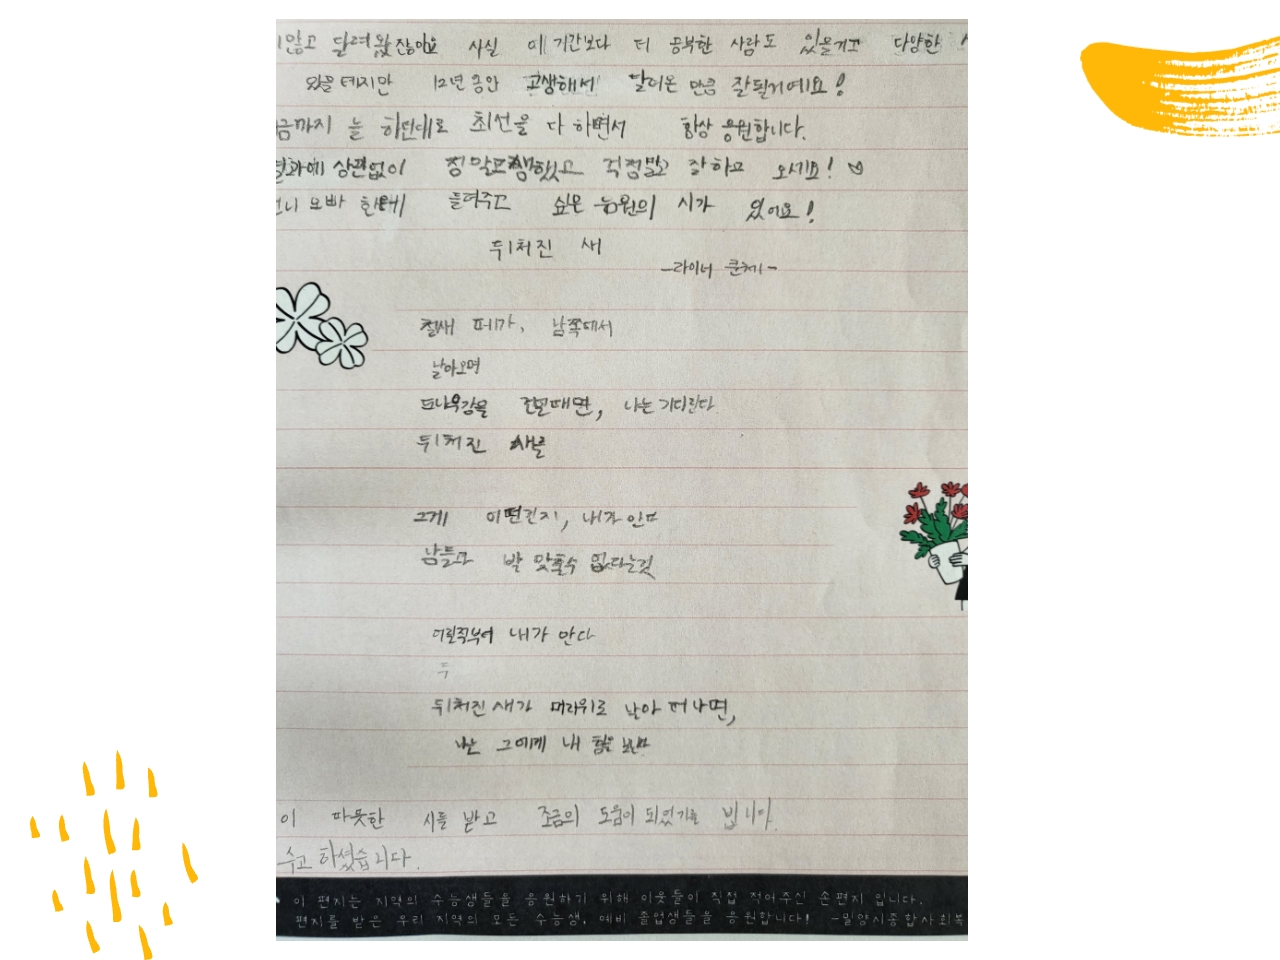 않고 달려왔잖아요 사실 이 기간보다 더 공부한 사람도 있을거고 다양한
있을 테지만 12년 동안 고생해서 달려온 만큼 잘될거예요!
금까지 늘 하던대로 최선을 다 하면서 항상 응원합니다.
결과에 상관없이 정말고생했고 걱정말고 잘하고 오세요! ♡
언니 오빠 한테 들려주고 싶은 응원의 시가 있어요!
뒤처진 새
-라이너 쿤체-
철새 떼가, 남쪽에서
날아오며
도나우강을 건널때면, 나는 기다린다
뒤처진 새를
그게 어떤건지, 내가 안다
남들과 발 맞출수 없다는것
어릴적부터 내가 안다
두
뒤처진 새가 머리위로 날아 떠나면,
나는 그에게 내 힘을 보낸다
이 따뜻한 시를 받고 조금의 도움이 되었기를 빕니다.
수고 하셨습니다.
이 편지는 지역의 수능생들을 응원하기 위해 이웃들이 직접 적어주신 손편지 입니다.
편지를 받은 우리 지역의 모든 수능생, 예비 졸업생들을 응원합니다! -밀양시종합사회복